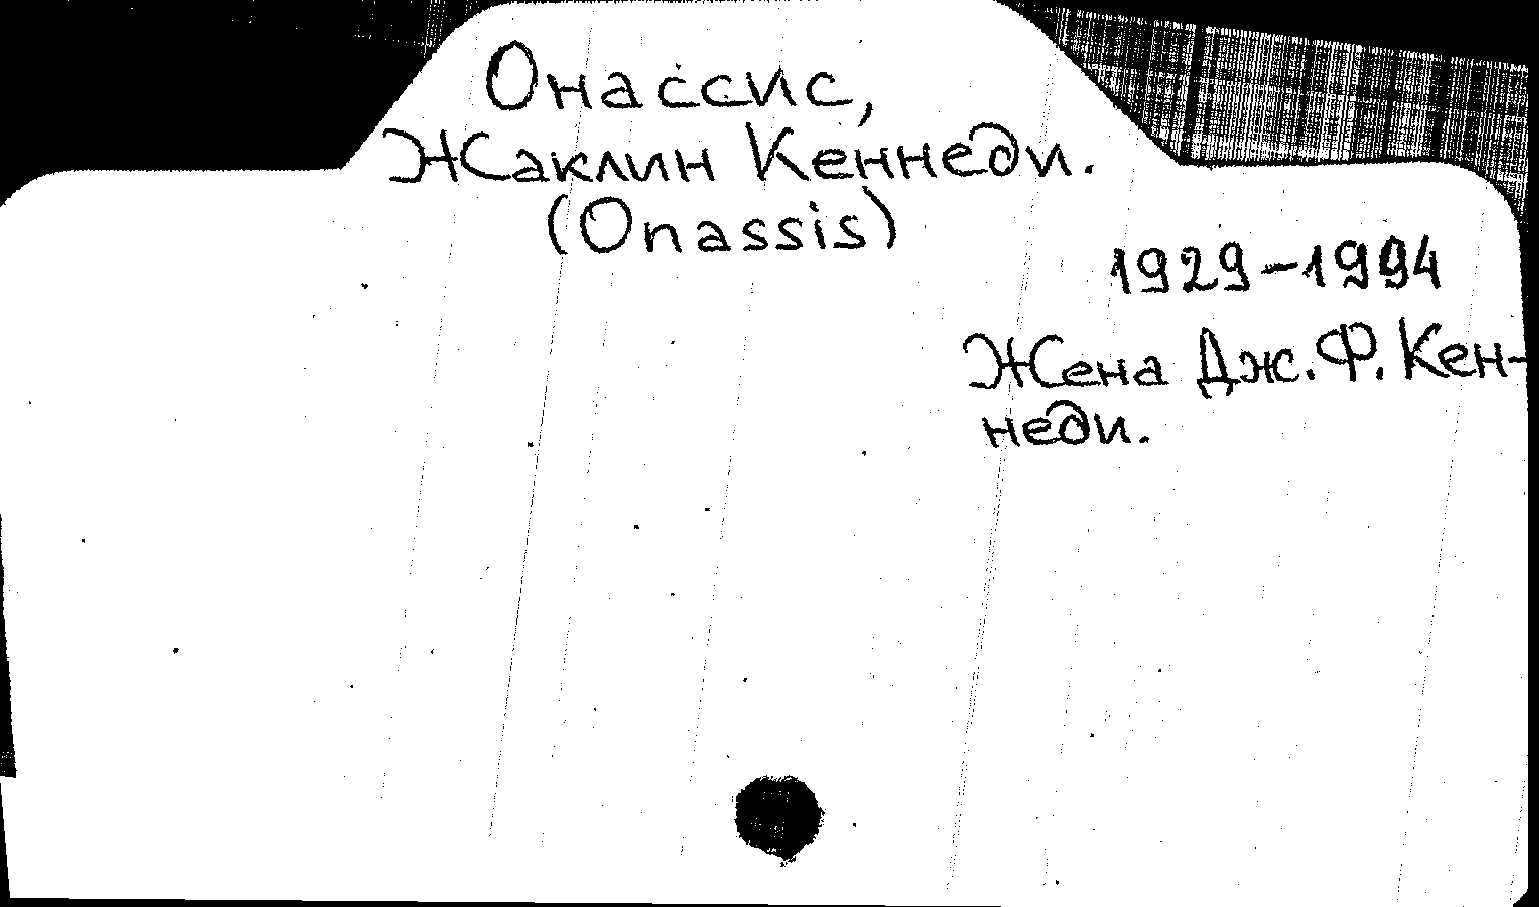 Онассис,
Жаклин Кеннеди.
(Onassis)
1929-1994
Жена Дж. Ф. Кен-
неди.